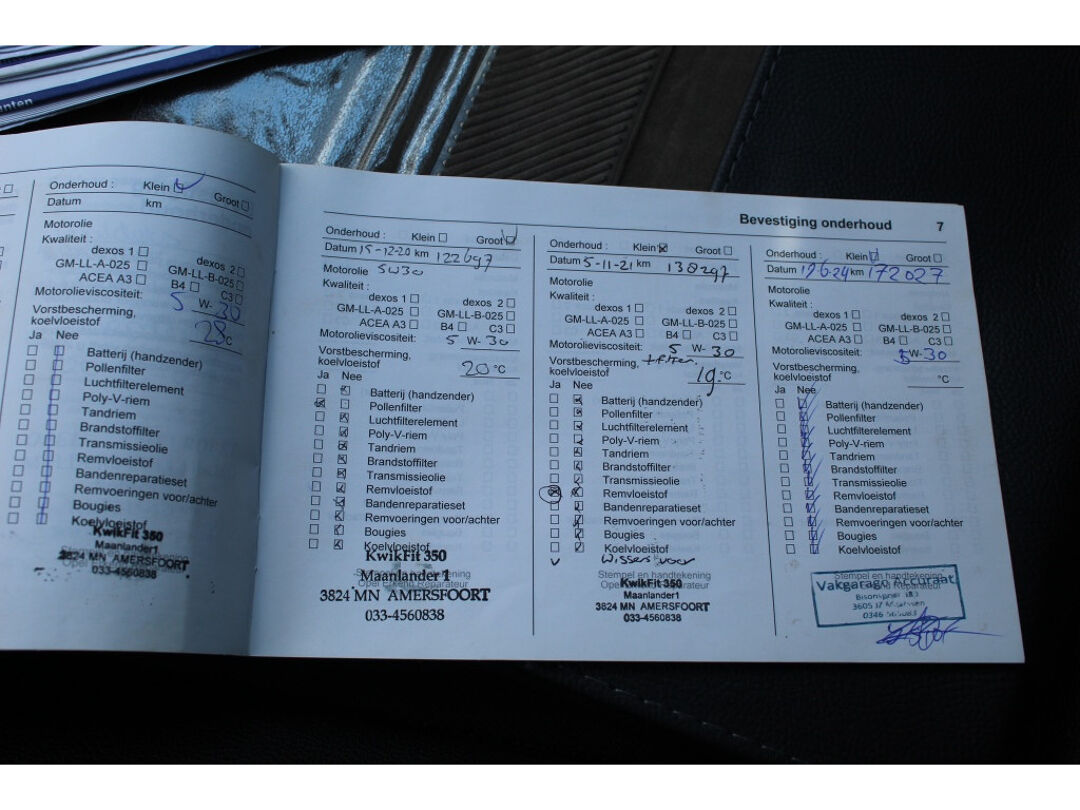 nten
Onderhoud : Klein Groot
Datum km
Motorolie
Kwaliteit :
dexos 1 dexos 2
GM-LL-A-025 GM-LL-B-025
ACEA A3 B4 C3
Motorolieviscositeit: 5 W- 30
Vorstbescherming,
koelvloeistof 28 °C
Ja Nee
Batterij (handzender)
Pollenfilter
Luchtfilterelement
Poly-V-riem
Tandriem
Brandstoffilter
Transmissieolie
Remvloeistof
Bandenreparatieset
Remvoeringen voor/achter
Bougies
Koelvloeistof
KwikFit 350
Maanlander1
3824 MN AMERSFOORT
033-4560838
Bevestiging onderhoud 7
Onderhoud : Klein Groot
Datum 15-12-20 km 122697
Motorolie 5W30
Kwaliteit :
dexos 1 dexos 2
GM-LL-A-025 GM-LL-B-025
ACEA A3 B4 C3
Motorolieviscositeit: 5 W- 30
Vorstbescherming,
koelvloeistof 20 °C
Ja Nee
Batterij (handzender)
Pollenfilter
Luchtfilterelement
Poly-V-riem
Tandriem
Brandstoffilter
Transmissieolie
Remvloeistof
Bandenreparatieset
Remvoeringen voor/achter
Bougies
Koelvloeistof
Stempel en handtekening
Opel Erkend Reparateur
KwikFit 350
Maanlander 1
3824 MN AMERSFOORT
033-4560838
Onderhoud : Klein Groot
Datum 5-11-21 km 138297
Motorolie
Kwaliteit :
dexos 1 dexos 2
GM-LL-A-025 GM-LL-B-025
ACEA A3 B4 C3
Motorolieviscositeit: 5 W- 30
Vorstbescherming, + filter
koelvloeistof 19 °C
Ja Nee
Batterij (handzender)
Pollenfilter
Luchtfilterelement
Poly-V-riem
Tandriem
Brandstoffilter
Transmissieolie
Remvloeistof
Bandenreparatieset
Remvoeringen voor/achter
Bougies
Koelvloeistof
v Wissers voor
Stempel en handtekening
Opel Erkend Reparateur
KwikFit 350
Maanlander1
3824 MN AMERSFOORT
033-4560838
Onderhoud : Klein Groot
Datum km 172027
Motorolie
Kwaliteit :
dexos 1 dexos 2
GM-LL-A-025 GM-LL-B-025
ACEA A3 B4 C3
Motorolieviscositeit: 5 W- 30
Vorstbescherming,
koelvloeistof °C
Ja Nee
Batterij (handzender)
Pollenfilter
Luchtfilterelement
Poly-V-riem
Tandriem
Brandstoffilter
Transmissieolie
Remvloeistof
Bandenreparatieset
Remvoeringen voor/achter
Bougies
Koelvloeistof
Stempel en handtekening
Vakgarage Accuraat
3605
0346